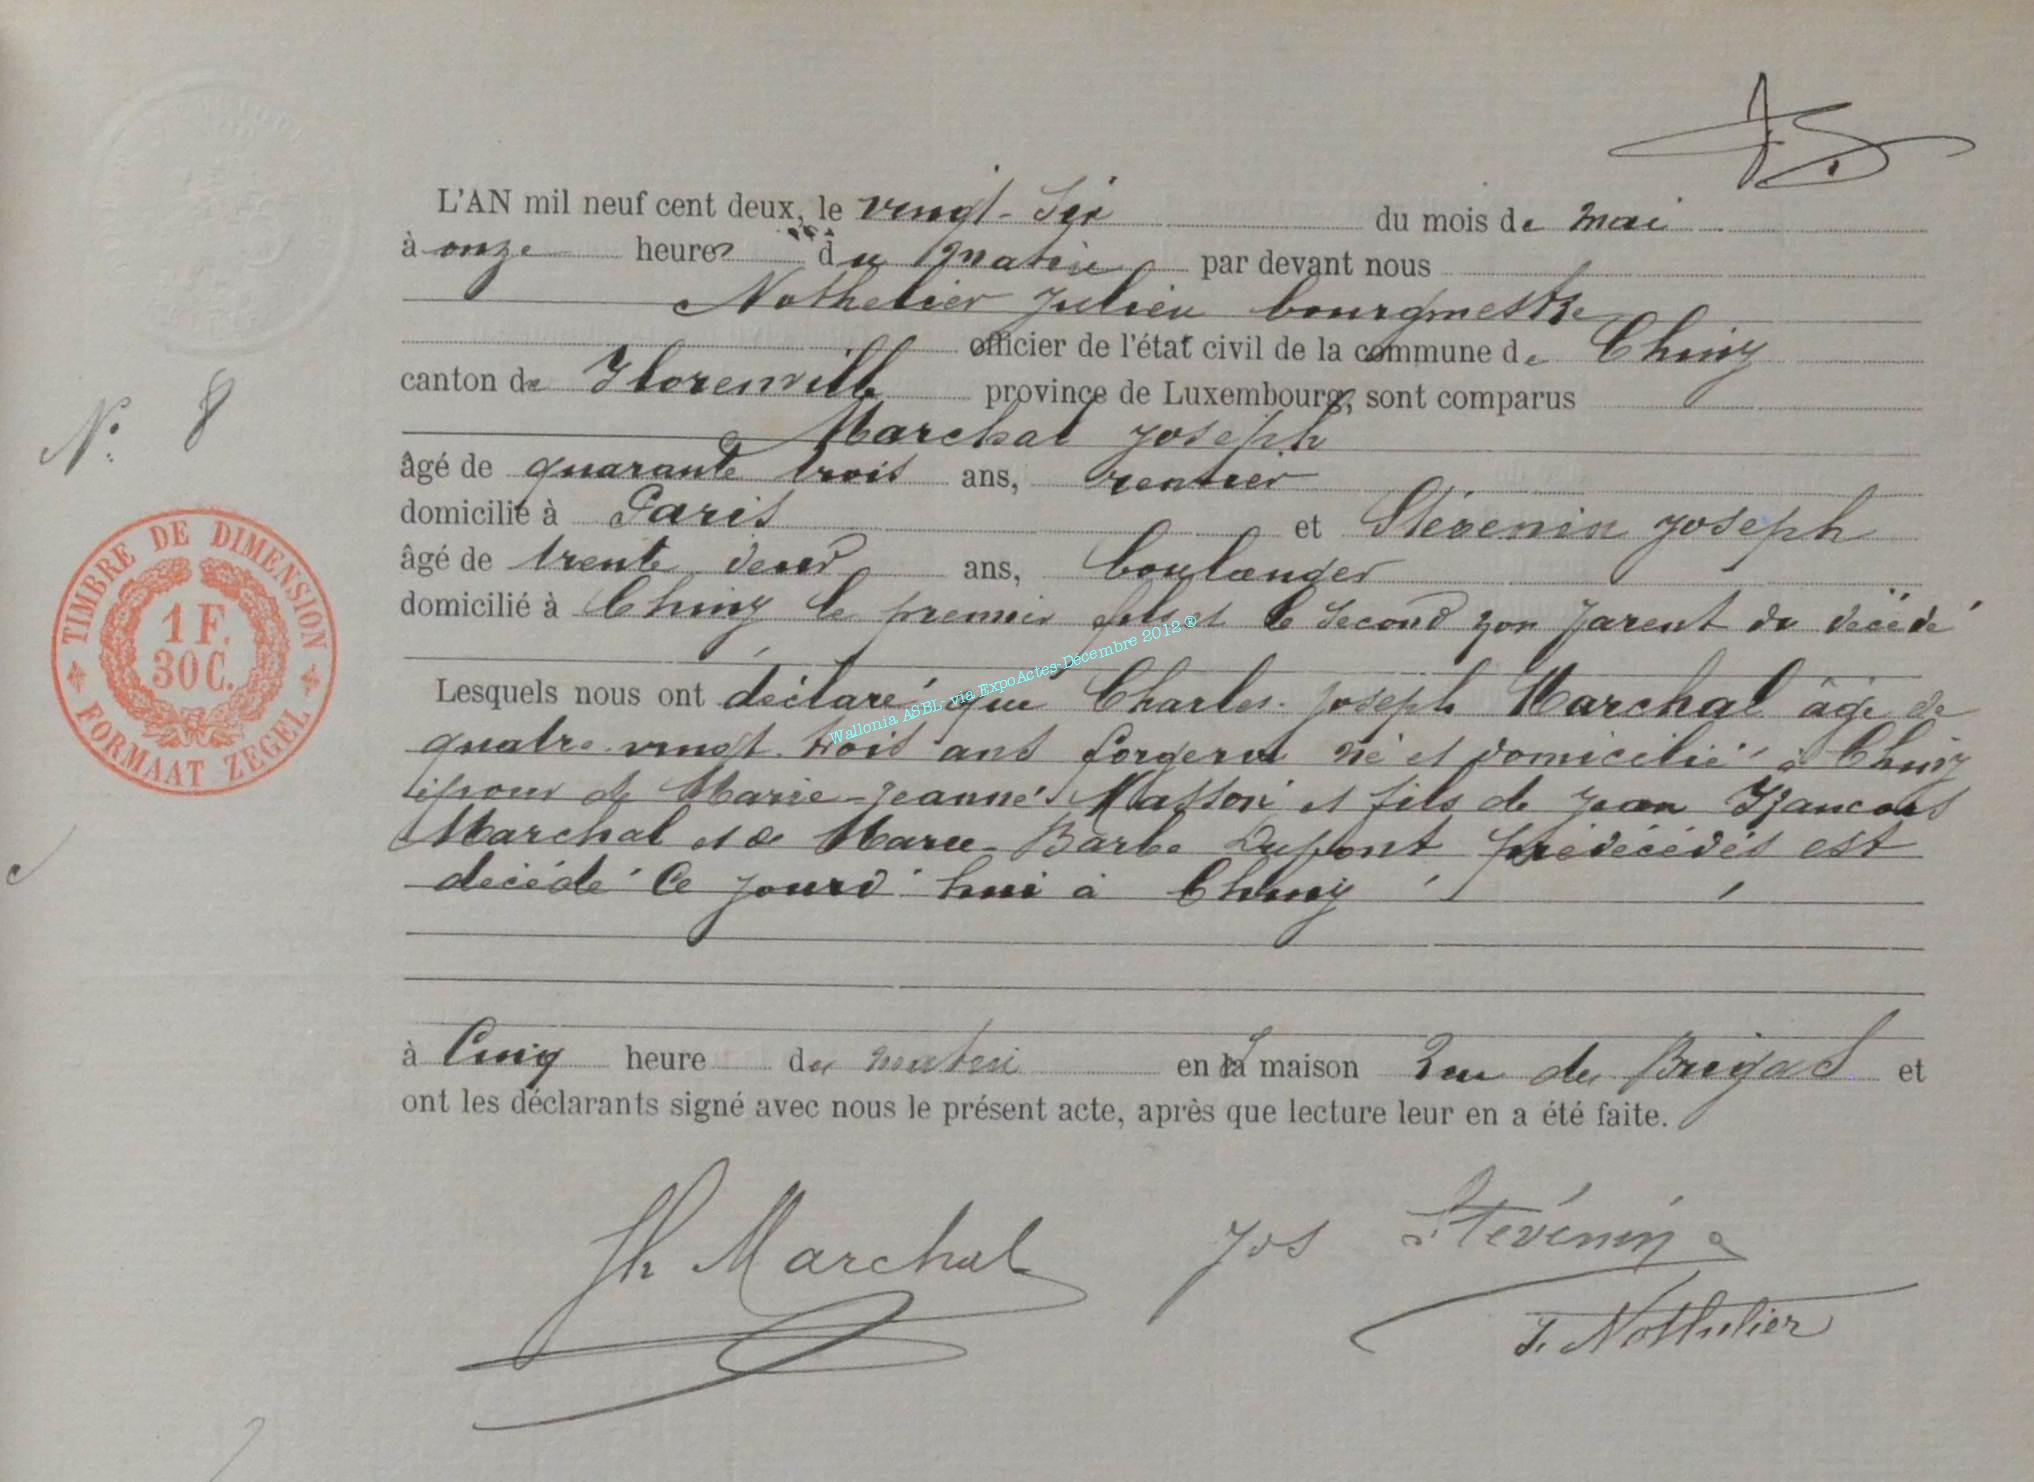 L'AN mil neuf cent deux, le vingt-six du mois de mai
à onze heures du matin par devant nous
Nothelier Julien bourgmestre
officier de l'état civil de la commune de Chiny
canton de Florenville province de Luxembourg, sont comparus
N° 8
Marchal Joseph
âgé de quarante trois ans, rentier
domicilié à Paris et Stévenin Joseph
âgé de trente deux ans, boulanger
domicilié à Chiny le premier fils et le second non parent du décédé
TIMBRE DE DIMENSION
1 F.
30 C.
FORMAAT ZEGEL
Wallonia ASBL via ExpoActes-Décembre 2012 ®
Lesquels nous ont déclaré que Charles-Joseph Marchal âgé de
quatre-vingt-trois ans forgeron né et domicilié à Chiny
époux de Marie-Jeanne Masson et fils de Jean François
Marchal et de Marie-Barbe Dupont prédécédés est
décédé ce jourd'hui à Chiny
à Cinq heure du matin en sa maison Rue du Brigat et
ont les déclarants signé avec nous le présent acte, après que lecture leur en a été faite.
Jh Marchal Jos Stévenin
J. Nothelier